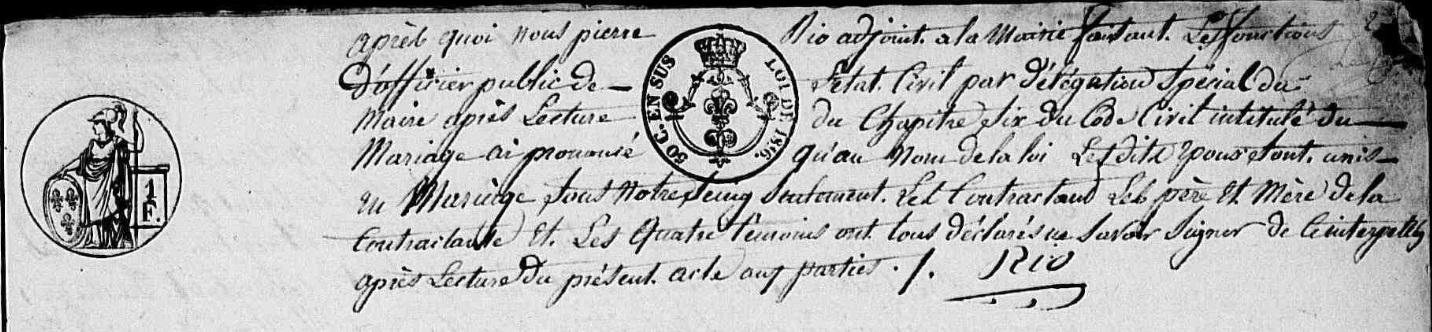 après quoi nous pierre Rio adjoint a la Mairie faisant Les fonctions
D'officier public de Letat Civil par délégation Spécial du
Maire après Lecture du Chapitre Six du Code Civil intitulé du
Mariage ai prononsé qu'au Nom de la loi Lesdits Epoux sont unis
en Mariage sous notre seing seulement. Les Contractans Les père et Mère de la
Contractante et Les Quatre temoins ont tous déclarés ne Savoir Signer de Ce interpellés
après Lecture du présent acte aux parties ./. Rio
50 C. EN SUS
LOI DE 1816.
1/2 F.